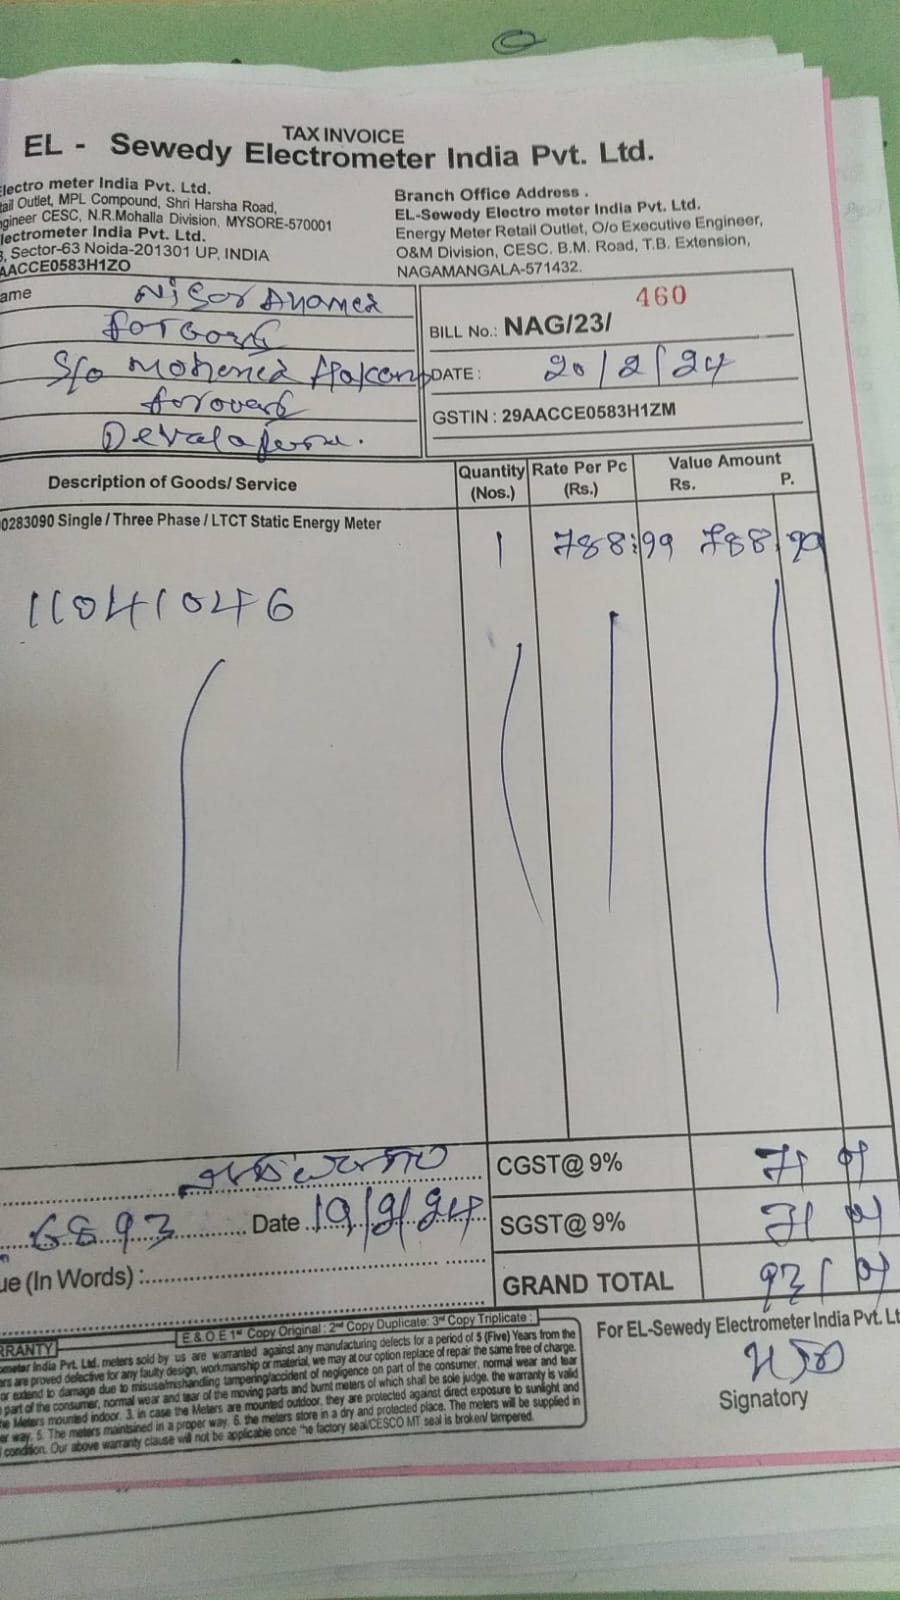 TAX INVOICE
EL - Sewedy Electrometer India Pvt. Ltd.
Electro meter India Pvt. Ltd.
tail Outlet, MPL Compound, Shri Harsha Road,
gineer CESC, N.R.Mohalla Division, MYSORE-570001
lectrometer India Pvt. Ltd.
Sector-63 Noida-201301 UP, INDIA
AACCE0583H1ZO
Branch Office Address .
EL-Sewedy Electro meter India Pvt. Ltd.
Energy Meter Retail Outlet, O/o Executive Engineer,
O&M Division, CESC. B.M. Road, T.B. Extension,
NAGAMANGALA-571432.
ame
S/o
460
BILL No.: NAG/23/
DATE : 20/2/24
GSTIN : 29AACCE0583H1ZM
Description of Goods/ Service
Quantity (Nos.)
Rate Per Pc (Rs.)
Value Amount
Rs. P.
0283090 Single / Three Phase / LTCT Static Energy Meter
1 788:99 788 99
11041046
CGST@ 9% 71 01
SGST@ 9% 71 01
6893 Date 19/2/24
ue (In Words) :
GRAND TOTAL 931 01
E & O E 1st Copy Original : 2nd Copy Duplicate: 3rd Copy Triplicate :
For EL-Sewedy Electrometer India Pvt. Lt
Signatory
RRANTY
ometer India Pvt. Ltd. meters sold by us are warranted against any manufacturing defects for a period of 5 (Five) Years from the
ers are proved defective for any faulty design, workmanship or material, we may at our option replace of repair the same free of charge.
or extend to damage due to misuse/mishandling tampering/accident of negligence on part of the consumer, normal wear and tear
part of the consumer, normal wear and tear of the moving parts and burnt meters of which shall be sole judge. the warranty is valid
he Meters mounted indoor. 3. in case the Meters are mounted outdoor. they are protected against direct exposure to sunlight and
er way. 5. The meters maintsined in a proper way. 6. the meters store in a dry and protected place. The meters will be supplied in
condition. Our above warranty clause will not be applicable once the factory seal/CESCO MT seal is broken/ tampered.